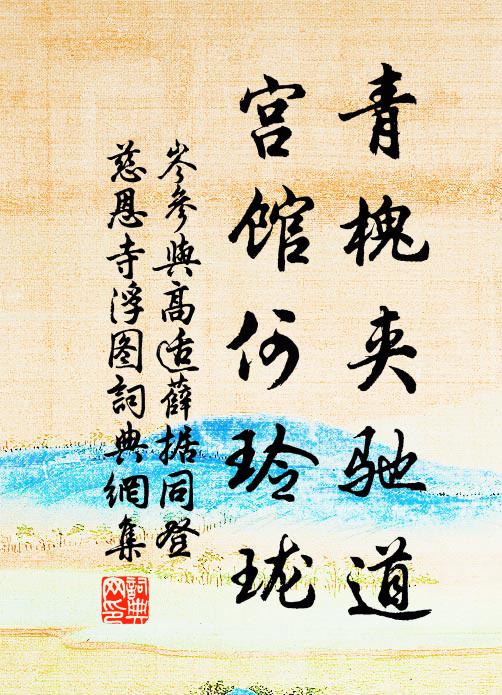 青槐夹驰道
宫馆何玲珑
岑参與高适薛据同登
慈恩寺浮图詞典網集